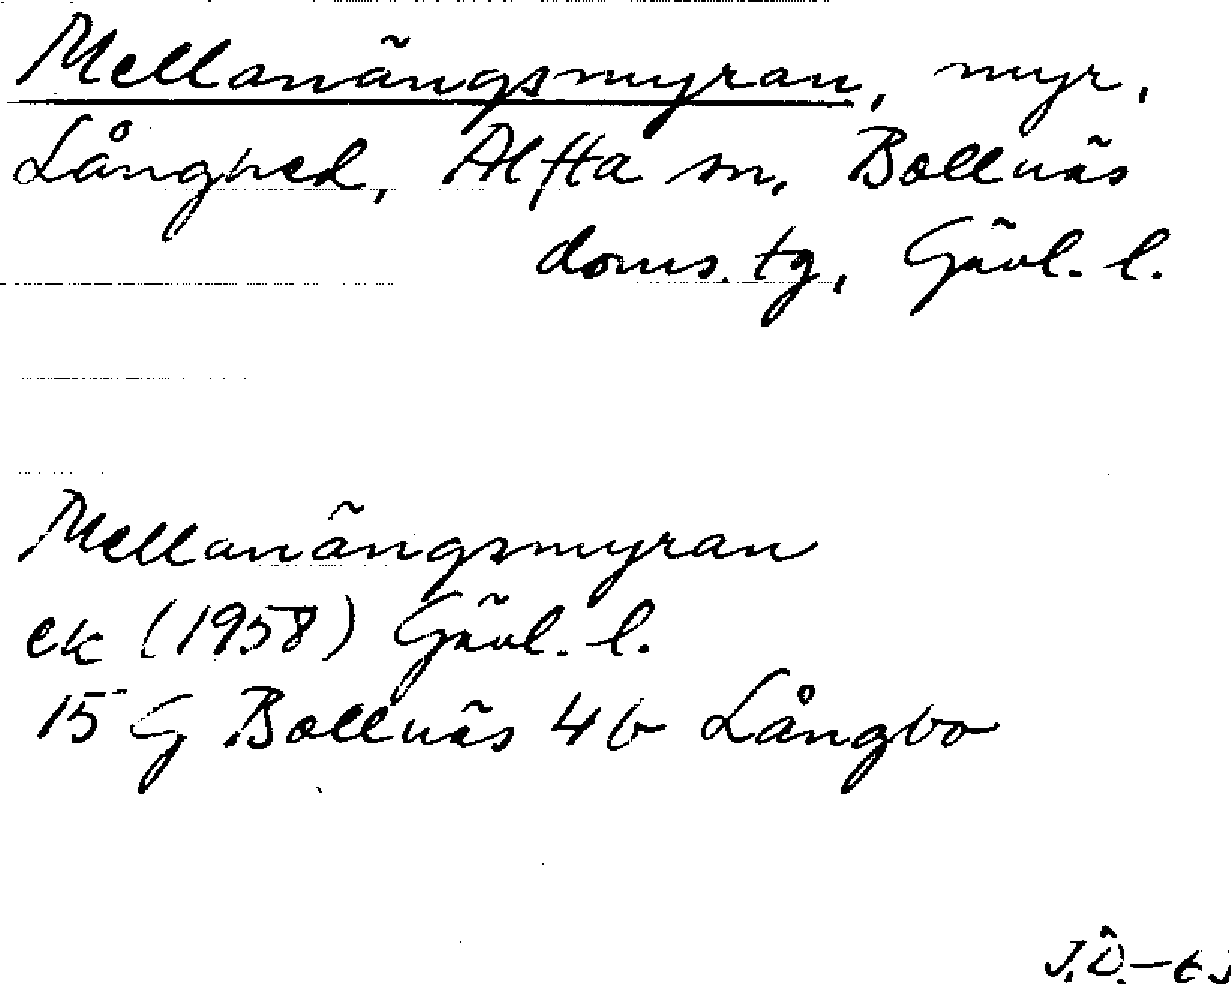 Mellanängsmyran, myr,
Långhed, Alfta sn, Bollnäs
doms. tg, Gävl. l.
Mellanängsmyran
ek (1958) Gävl. l.
15 G Bollnäs 4 b Långbo